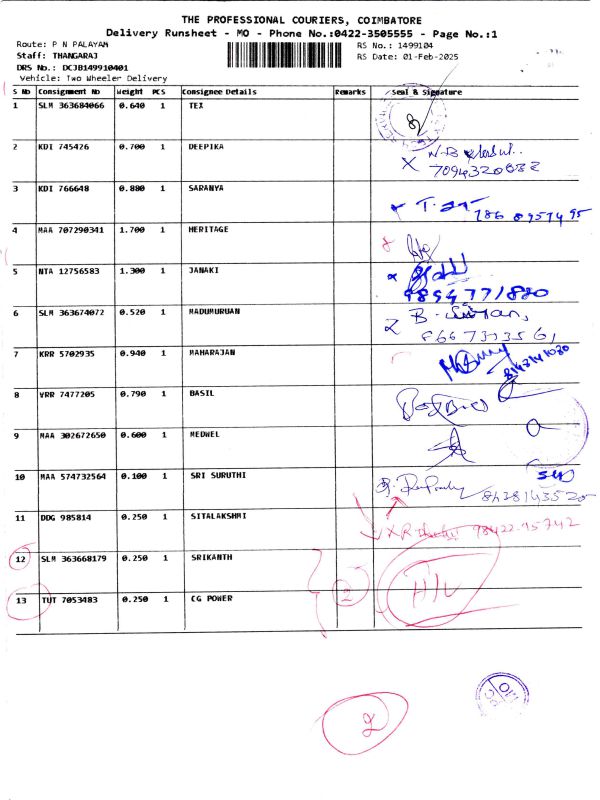 THE PROFESSIONAL COURIERS, COIMBATORE
Delivery Runsheet - MO - Phone No.:0422-3505555 - Page No.:1
Route: P N PALAYAM RS No.: 1499104
Staff: THANGARAJ RS Date: 01-Feb-2025
DRS No.: DCJB149910401
Vehicle: Two Wheeler Delivery
S No Consignment No Weight PCS Consignee Details Remarks Seal & Signature
1 SLM 363684066 0.640 1 TEX
2 KDI 745426 0.700 1 DEEPIKA
3 KDI 766648 0.880 1 SARANYA
4 MAA 707290341 1.700 1 HERITAGE
5 NTA 12756583 1.300 1 JANAKI
9894771880
6 SLM 363674072 0.520 1 MADUMURUAN
7 KRR 5702935 0.940 1 MAHARAJAN
8 VRR 7477205 0.790 1 BASIL
9 MAA 302672650 0.600 1 MEDWEL
10 MAA 574732564 0.100 1 SRI SURUTHI
8438143525
11 DDG 985814 0.250 1 SITALAKSHMI
98422-95742
12 SLM 363668179 0.250 1 SRIKANTH
13 TUT 7053483 0.250 1 CG POWER
2 H/L
2